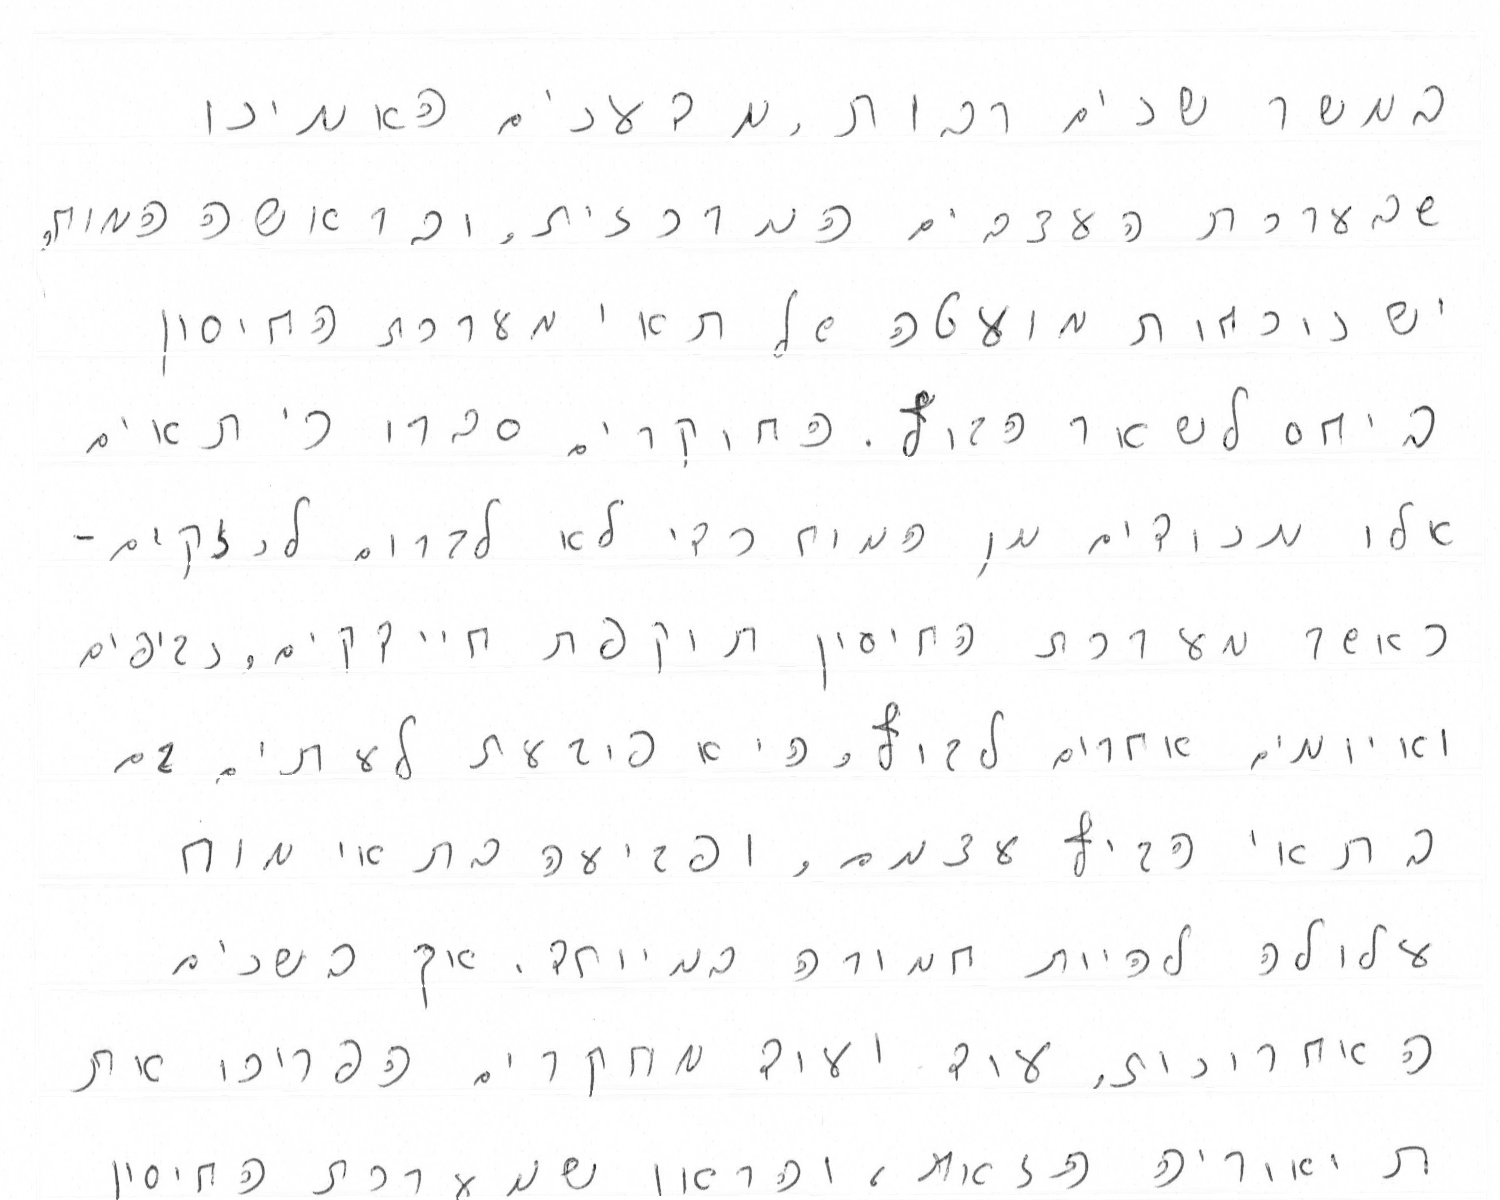 במשך שנים רבות, מדענים האמינו
שבערכת העצבים המרכזית, ובראשה המוח,
יש נוכחות מועטה של תאי מערכת החיסון
ביחס לשאר הגוף. החוקרים סברו כי תאים
אלו מנודים מן המוח כדי לא לגרום לנזקים-
כאשר מערכת החיסון תוקפת חיידקים, נגיפים
ואיומים אחרים לגוף, היא פוגעת לעתים גם
בתאי הגיף עצמם, ופגיעה בתאי מוח
עלולה להיות חמורה במיוחד. אך בשנים
האחרונות, עוד ועוד מחקרים הפריכו את
תיאוריה הזאת, והראו שמערכת החיסון